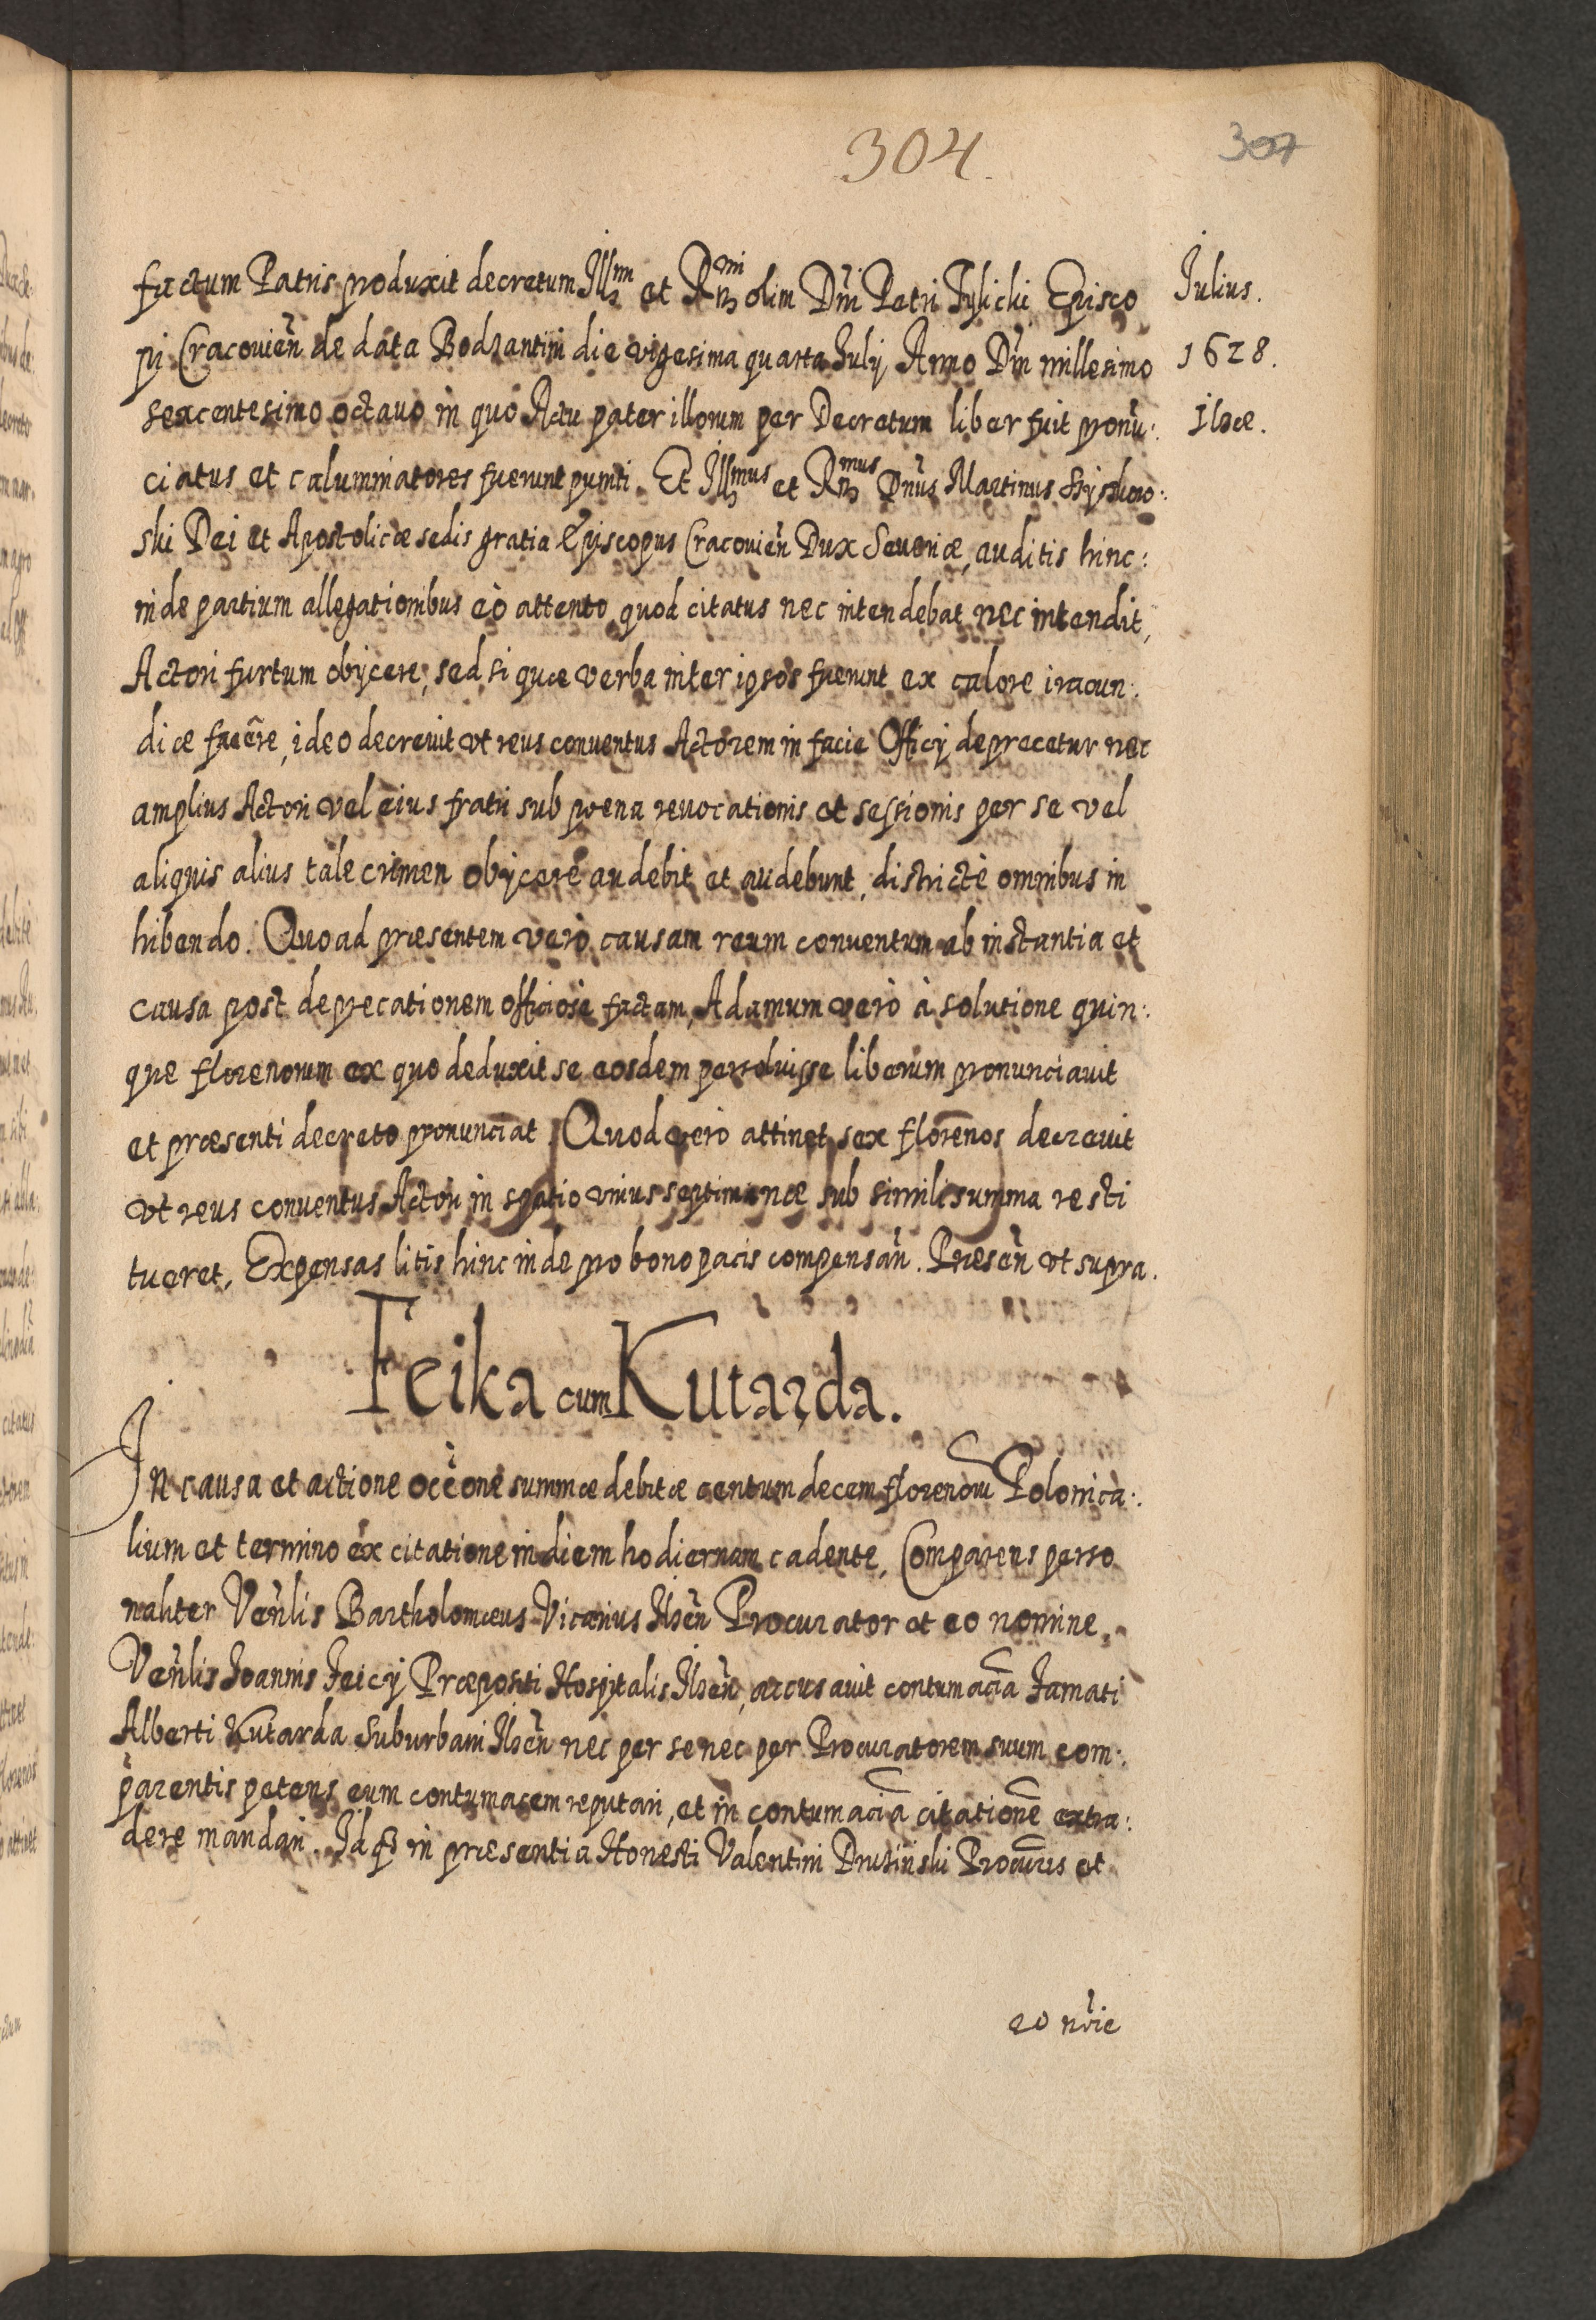 304.
307
factum Patris produxit decretum Illmi et Rmi olim Dni Petri Tylicki Episco
pi Cracovien̄ de data Bodzantini die vigesima quarta Iulij Anno Dn̄i millesimo
sexcentesimo octauo in quo Actu pater illorum per Decretum liber fuit pronū:
ciatus et calumniatores fuerunt puniti. Et Illmus et Rmus Dn̄us Martinus Szyszkow:
ski Dei et Apostolicæ sedis gratia Episcopus Cracovien̄ Dux Seueriæ, auditis hinc:
inde partium allegationibus eò attento quod citatus nec intendebat nec intendit,
Actori furtum obijcere, sed si quæ verba inter ipsos fuerunt ex calore iracun:
diæ fuēre, ideo decreuit vt reus conuentus Actorem in facie Officij deprecetur nec
amplius Actori vel eius fratri sub poena reuocationis et sessionis per se vel
aliquis alius tale crimen obijcere audebit et audebunt, districtè omnibus in
hibendo. Quo ad præsentem verò causam reum conuentum ab instantia et
causa post deprecationem officiosè factam, Adamum verò à solutione quin:
que florenorum ex quo deduxit se eosdem persoluisse liberum pronunciauit
et præsenti decreto pronunciat. Quod verò attinet sex florenos decreuit
vt reus conuentus Actori in spatio vnius septimanæ sub simili summa resti
tueret. Expensas litis hinc inde pro bono pacis compensan̄. Præsen̄ vt supra.
Iulius.
1628.
Ilzæ.
Feika cum Kutarda.
In causa et actione occ̄one summæ debitæ centum decem florenorū Polonica:
lium et termino ex citatione in diem hodiernam cadente, Comparens perso
naliter Ven̄lis Bartholomæus Vicarius Ilzen̄ Procurator et eo nomine
Ven̄lis Ioannis Feicij Præpositi Hospitalis Ilzen̄, accusauit contumaciā Famati
Alberti Kutarda Suburbani Ilzen̄ nec per se nec per Procuratorem suum com:
parentis petens eum contumacem reputari, et in contumaciā citationē extra:
dere mandari. Idq3 in præsentia Honesti Valentini Druzinski Procuris et
eo noīe